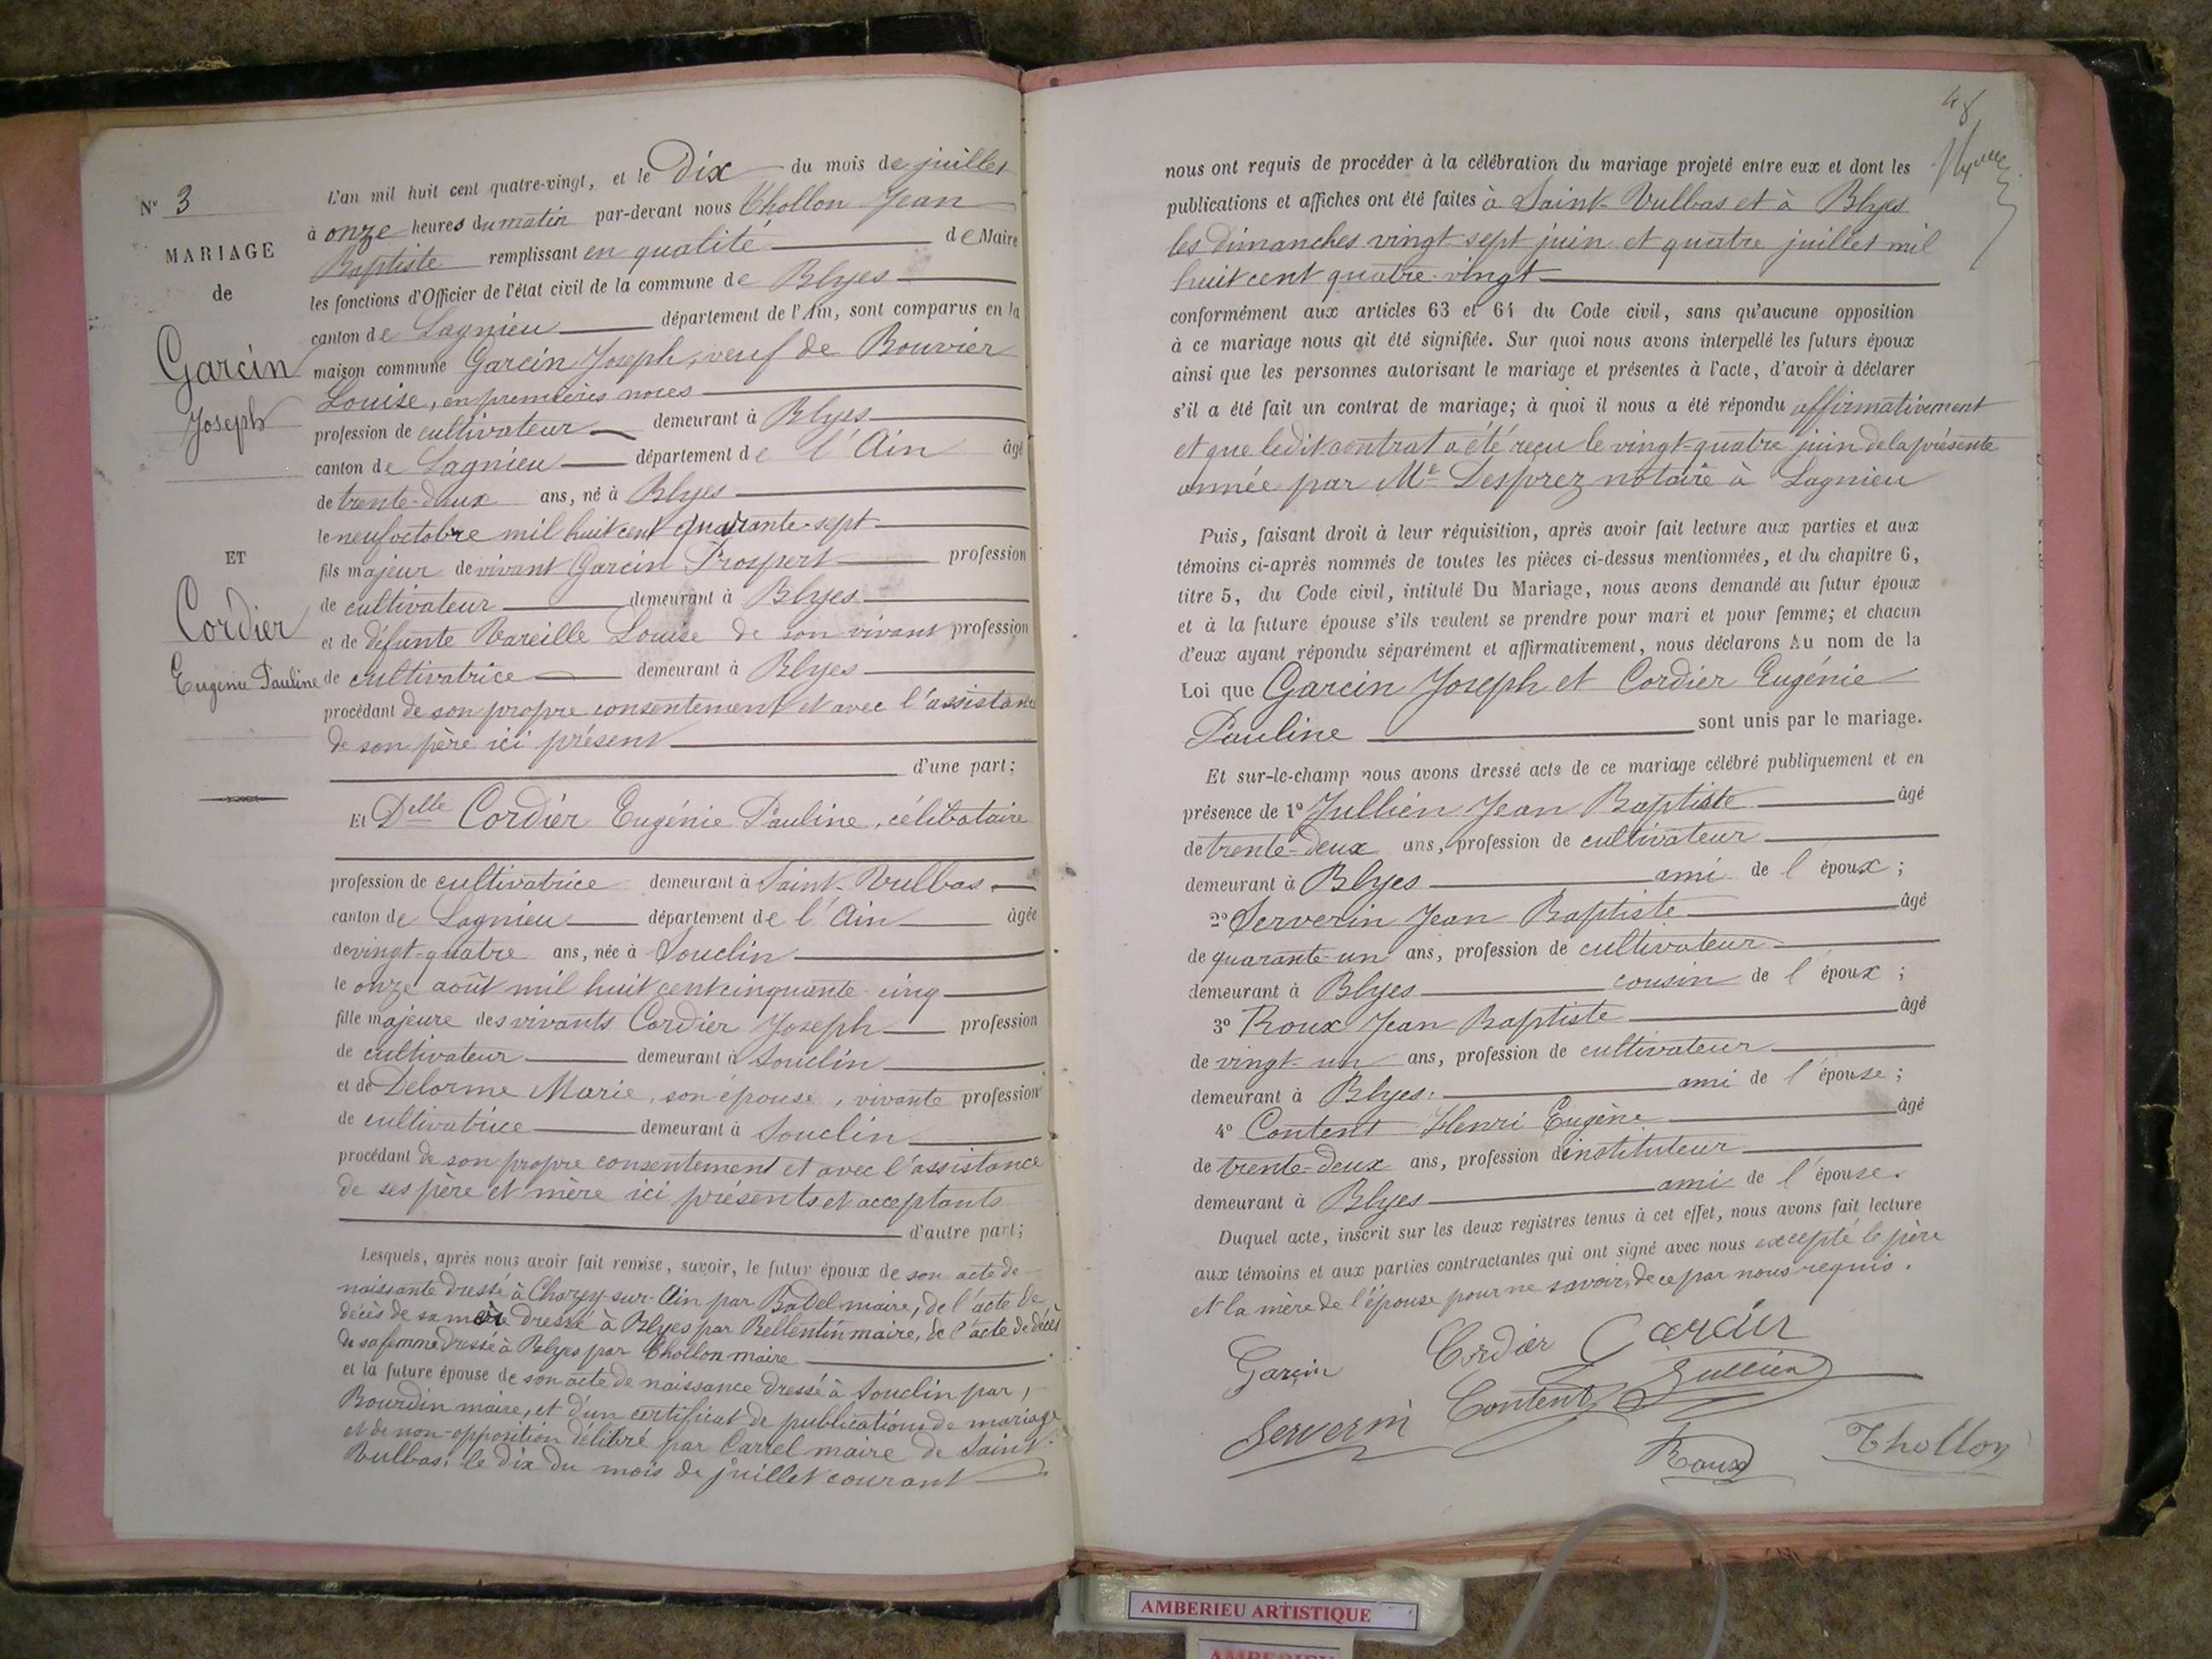 N° 3
MARIAGE
de
Garcin
Joseph
ET
Cordier
Eugénie Pauline
L'an mil huit cent quatre-vingt, et le Dix du mois de juillet
à onze heures du matin par-devant nous Thollon Jean
Baptiste remplissant en qualité de Maire
les fonctions d'Officier de l'état civil de la commune de Blyes
canton de Lagnieu département de l'Ain, sont comparus en la
maison commune Garcin Joseph, veuf de Bouvier
Louise, en premières noces
profession de cultivateur demeurant à Blyes
canton de Lagnieu département de l'Ain âgé
de trente-deux ans, né à Blyes
le neuf octobre mil huit cent quarante-sept
fils majeur de vivant Garcin Prospert profession
de cultivateur demeurant à Blyes
et de défunte Vareille Louise de son vivant profession
de cultivatrice demeurant à Blyes
procédant de son propre consentement et avec l'assistance
de son père ici présent
d'une part;
Et Delle Cordier Eugénie Pauline, célibataire
profession de cultivatrice demeurant à Saint-Vulbas
canton de Lagnieu département de l'Ain âgée
de vingt-quatre ans, née à Souclin
le onze août mil huit cent cinquante-cinq
fille majeure des vivants Cordier Joseph profession
de cultivateur demeurant à Souclin
et de Delorme Marie, son épouse, vivante profession
de cultivatrice demeurant à Souclin
procédant de son propre consentement et avec l'assistance
de ses père et mère ici présents et acceptants
d'autre part;
Lesquels, après nous avoir fait remise, savoir, le futur époux de son acte de
naissante dressé à Chazey-sur-Ain par Babel maire, de l'acte de
décès de sa mère dressé à Blyes par Bellentin maire, de l'acte de décès
de sa femme dressé à Blyes par Thollon maire
et la future épouse de son acte de naissance dressé à Souclin par,
Bourdin maire, et d'un certificat de publications de mariage
et de non-opposition délivré par Carrel maire de Saint-
Vulbas, le dix du mois de juillet courant
48
nous ont requis de procéder à la célébration du mariage projeté entre eux et dont les
publications et affiches ont été faites à Saint-Vulbas et à Blyes
les Dimanches vingt-sept juin et quatre juillet mil
huit cent quatre-vingt
conformément aux articles 63 et 64 du Code civil, sans qu'aucune opposition
à ce mariage nous ait été signifiée. Sur quoi nous avons interpellé les futurs époux
ainsi que les personnes autorisant le mariage et présentes à l'acte, d'avoir à déclarer
s'il a été fait un contrat de mariage; à quoi il nous a été répondu affirmativement
et que ledit contrat a été reçu le vingt-quatre juin de la présente
année par Me Desprez notaire à Lagnieu
Puis, faisant droit à leur réquisition, après avoir fait lecture aux parties et aux
témoins ci-après nommés de toutes les pièces ci-dessus mentionnées, et du chapitre 6,
titre 5, du Code civil, intitulé Du Mariage, nous avons demandé au futur époux
et à la future épouse s'ils veulent se prendre pour mari et pour femme; et chacun
d'eux ayant répondu séparément et affirmativement, nous déclarons Au nom de la
Loi que Garcin Joseph et Cordier Eugénie
Pauline sont unis par le mariage.
Et sur-le-champ nous avons dressé acte de ce mariage célébré publiquement et en
présence de 1° Jullien Jean Baptiste âgé
de trente-deux ans, profession de cultivateur
demeurant à Blyes ami de l'époux;
2° Serverin Jean Baptiste âgé
de quarante-un ans, profession de cultivateur
demeurant à Blyes cousin de l'époux;
3° Roux Jean Baptiste âgé
de vingt-un ans, profession de cultivateur
demeurant à Blyes. ami de l'épouse;
4° Content Henri Eugène âgé
de trente-deux ans, profession d'instituteur
demeurant à Blyes ami de l'épouse.
Duquel acte, inscrit sur les deux registres tenus à cet effet, nous avons fait lecture
aux témoins et aux parties contractantes qui ont signé avec nous excepté le père
et la mère de l'épouse pour ne savoir, de ce par nous requis.
Garcin Cordier Garcin
Serverin Content Jullien
Roux Thollon
AMBERIEU ARTISTIQUE
AMBERIEU